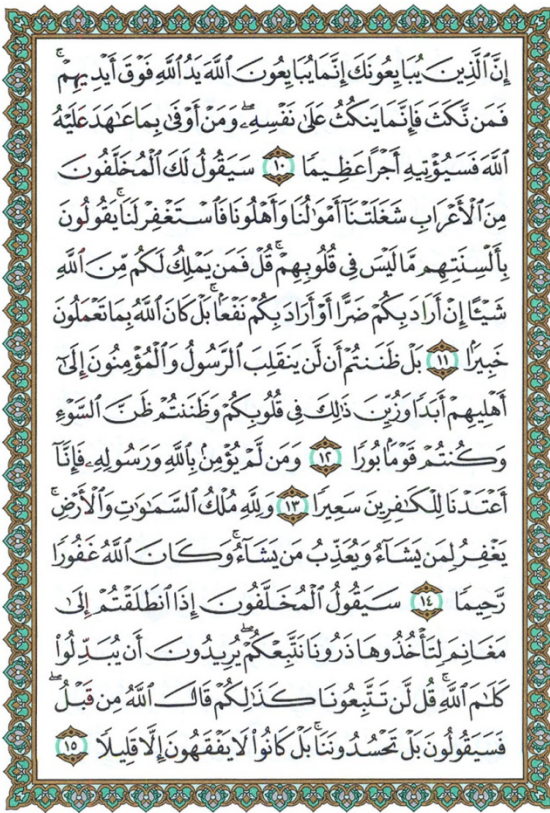 إِنَّ ٱلَّذِينَ يُبَايِعُونَكَ إِنَّمَا يُبَايِعُونَ ٱللَّهَ يَدُ ٱللَّهِ فَوۡقَ أَيۡدِيهِمۡۚ
فَمَن نَّكَثَ فَإِنَّمَا يَنكُثُ عَلَىٰ نَفۡسِهِۦۖ وَمَنۡ أَوۡفَىٰ بِمَا عَٰهَدَ عَلَيۡهُ
ٱللَّهَ فَسَيُؤۡتِيهِ أَجۡرًا عَظِيمٗا ١٠ سَيَقُولُ لَكَ ٱلۡمُخَلَّفُونَ
مِنَ ٱلۡأَعۡرَابِ شَغَلَتۡنَآ أَمۡوَٰلُنَا وَأَهۡلُونَا فَٱسۡتَغۡفِرۡ لَنَاۚ يَقُولُونَ
بِأَلۡسِنَتِهِم مَّا لَيۡسَ فِي قُلُوبِهِمۡۚ قُلۡ فَمَن يَمۡلِكُ لَكُم مِّنَ ٱللَّهِ
شَيۡـًٔا إِنۡ أَرَادَ بِكُمۡ ضَرًّا أَوۡ أَرَادَ بِكُمۡ نَفۡعَۢاۚ بَلۡ كَانَ ٱللَّهُ بِمَا تَعۡمَلُونَ
خَبِيرَۢا ١١ بَلۡ ظَنَنتُمۡ أَن لَّن يَنقَلِبَ ٱلرَّسُولُ وَٱلۡمُؤۡمِنُونَ إِلَىٰٓ
أَهۡلِيهِمۡ أَبَدٗا وَزُيِّنَ ذَٰلِكَ فِي قُلُوبِكُمۡ وَظَنَنتُمۡ ظَنَّ ٱلسَّوۡءِ
وَكُنتُمۡ قَوۡمَۢا بُورٗا ١٢ وَمَن لَّمۡ يُؤۡمِنۢ بِٱللَّهِ وَرَسُولِهِۦ فَإِنَّآ
أَعۡتَدۡنَا لِلۡكَٰفِرِينَ سَعِيرٗا ١٣ وَلِلَّهِ مُلۡكُ ٱلسَّمَٰوَٰتِ وَٱلۡأَرۡضِۚ
يَغۡفِرُ لِمَن يَشَآءُ وَيُعَذِّبُ مَن يَشَآءُۚ وَكَانَ ٱللَّهُ غَفُورٗا
رَّحِيمٗا ١٤ سَيَقُولُ ٱلۡمُخَلَّفُونَ إِذَا ٱنطَلَقۡتُمۡ إِلَىٰ
مَغَانِمَ لِتَأۡخُذُوهَا ذَرُونَا نَتَّبِعۡكُمۡۖ يُرِيدُونَ أَن يُبَدِّلُواْ
كَلَٰمَ ٱللَّهِۚ قُل لَّن تَتَّبِعُونَا كَذَٰلِكُمۡ قَالَ ٱللَّهُ مِن قَبۡلُۖ
فَسَيَقُولُونَ بَلۡ تَحۡسُدُونَنَاۚ بَلۡ كَانُواْ لَا يَفۡقَهُونَ إِلَّا قَلِيلٗا ١٥